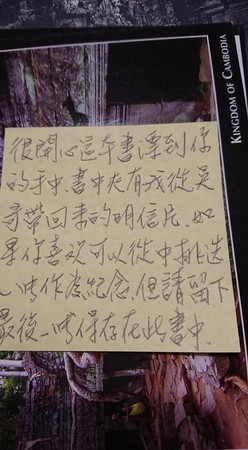 KINGDOM OF CAMBODIA
很開心這本書漂到你
的手中.書中夾有我從吳
哥帶回來的明信片.如
果你喜欢可以從中挑选
一張作為紀念.但請留下
最後一張保存在此書中.